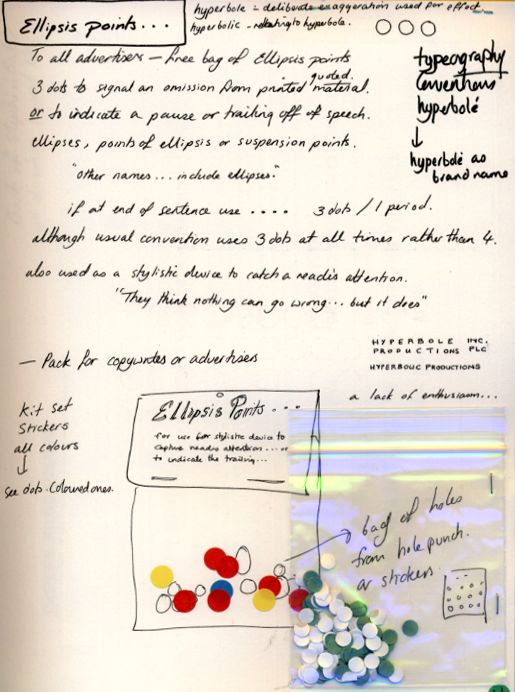 Ellipsis points...
hyperbole = deliberate exaggeration used for effect.
hyperbolic - relating to hyperbola.
To all advertisers — free bag of Ellipsis points
typeography
conventions
hyperbolé
↓
hyperbolé as
brand name
quoted
3 dots to signal an omission from printed material.
or to indicate a pause or trailing off of speech.
ellipses, points of ellipsis or suspension points.
"other names... include ellipses."
if at end of sentence use .... 3 dots / 1 period.
although usual convention uses 3 dots at all times rather than 4.
also used as a stylistic device to catch a readis attention.
"They think nothing can go wrong... but it does"
HYPERBOLE INC.
PRODUCTIONS PLC
HYPERBOLIC PRODUCTIONS
— Pack for copywrites or advertisers
a lack of enthusiasm...
Kit set
stickers
all colours
↓
see dots. Coloured ones.
Ellipsis Points...
for use for stylistic device to
capture readis attention... or
to indicate the trailing...
bag of holes
from hole punch.
or stickers.